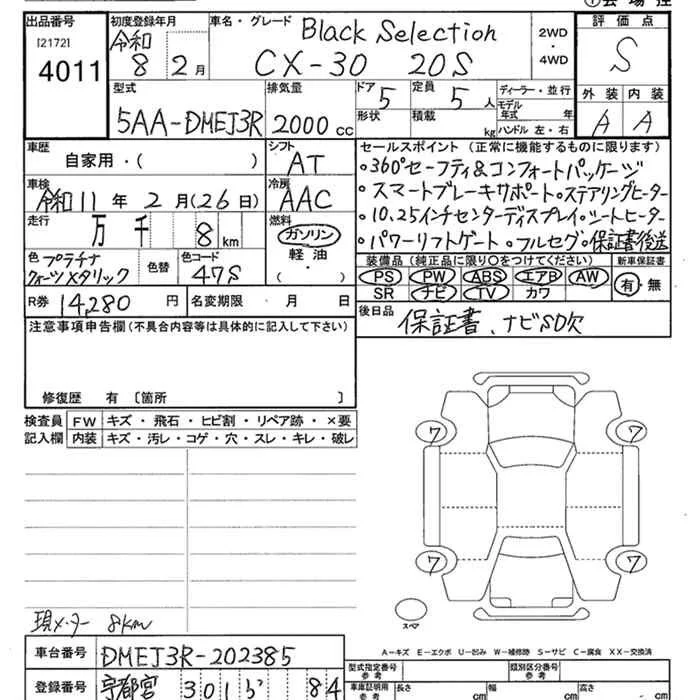 ①会場控
出品番号 初度登録年月 車名・グレード Black Selection 2WD・4WD 評価点
[2172] 令和 8 2月 CX-30 20S S
4011
型式 排気量 ドア 定員 ディーラー・並行 外装 内装
5AA-DMEJ3R 2000cc 5 5人 モデル年式 年 A A
形状 積載 kg ハンドル 左・右
車歴 シフト セールスポイント(正常に機能するものに限ります)
自家用・( ) AT ・360°セーフティ&コンフォートパッケージ
車検 冷房 ・スマートブレーキサポート・ステアリングヒーター
令和11年2月(26日) AAC ・10.25インチセンターディスプレイ・シートヒーター
走行 万 千 8km 燃料 ・パワーリフトゲート・フルセグ・保証書後送
ガソリン
軽油
・( )
色 プラチナ 色替 色コード 装備品(純正品に限り○をつけてください) 新車保証書
クォーツメタリック 47S PS PW ABS エアB AW 有・無
SR ナビ TV カワ
R券 14,280円 名変期限 月 日 後日品
保証書、ナビSD欠
注意事項申告欄(不具合内容等は具体的に記入して下さい)
修復歴 有 〔箇所 〕
検査員 FW キズ・飛石・ヒビ割・リペア跡・×要
記入欄 内装 キズ・汚レ・コゲ・穴・スレ・キレ・破レ
7 7
7 7
スペア
現メーター 8km
A-キズ E-エクボ U-凹み W-補修跡 S-サビ C-腐食 XX-交換済
車台番号 DMEJ3R-202385
型式指定番号 類別区分番号
登録番号 宇都宮 301 84
車庫証明用参考 長さ cm 幅 cm 高さ cm